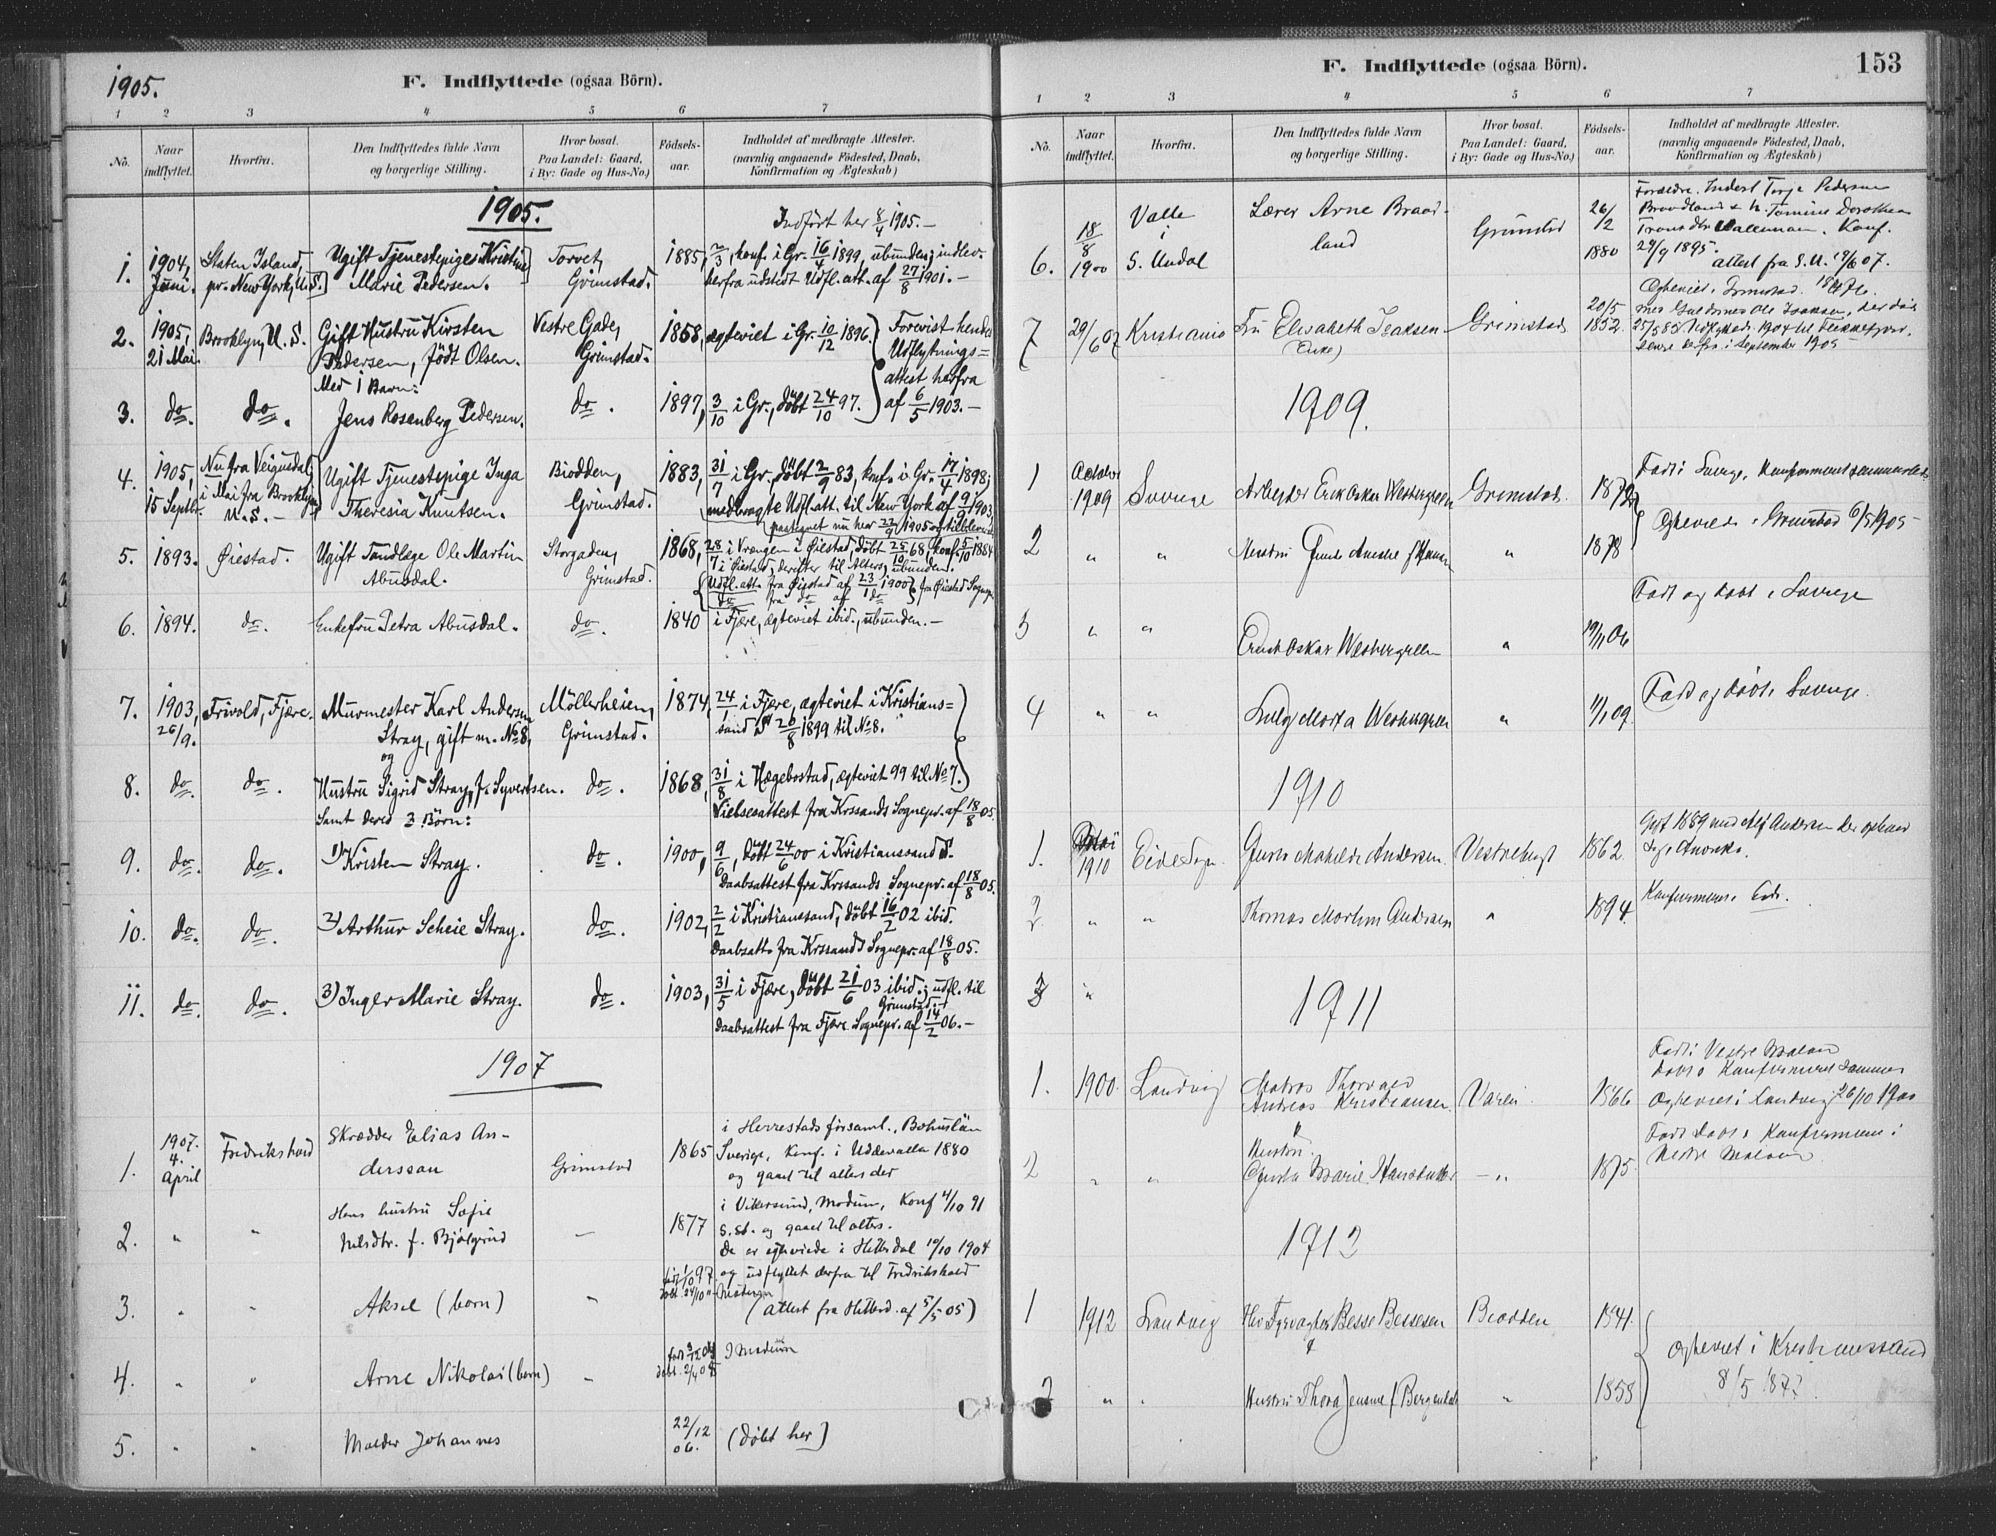 1905.
F. Indflyttede (ogsaa Börn).
1 2 3 4 5 6 7
No. Naar indflyttet. Hvorfra. Den Indflyttedes fulde Navn og borgerlige Stilling. Hvor bosat. Paa Landet: Gaard, i By: Gade og Hus-No.) Födsels-aar. Indholdet af medbragte Attester. (navnlig angaaende Födested, Daab, Konfirmation og Ægteskab)
1905. Indført her 8/4 1905.-
1. 1904, Juni. Staten Island, pr. New York, U.S. Ugift Tjenestepige Kristine Marie Pedersen. Torvet, Grimstad. 1885, 2/3, konf. i Gr. 16/4 1899, ubunden; indlev. herfra udstedt Udfl.att. af 27/8 1901.-
2. 1905, 21 Mai. Brooklyn, U.S. Gift Hustru Kirsten Pedersen, født Olsen. Vestre Gade, Grimstad. 1858, ægteviet i Gr. 10/12 1896. Forevist hendes Udflytnings=attest herfra af 6/5 1903.-
Med 1 Barn:
3. do. do. Jens Rosenberg Pedersen. do. 1897, 3/10 i Gr., døbt 24/10 97.
4. 1905, 15 Septbr. Nu fra Veigusdal, i Mai fra Brooklyn, U.S.- Ugift Tjenestepige Inga Theresia Knutsen. Biodden, Grimstad. 1883, 31/7 i Gr., døbt 2/9 83, konf. i Gr. 17/4 1898; medbragte Udfl.att. til New York af 9/9 1903,
paategnet nu her 22/9 1905
5. 1893. Øiestad. Ugift Tandlæge Ole Martin Abusdal. Storgaden, Grimstad. 1868, 28/7 i Vrængen i Øiestad, døbt 25/10 68, konf. 5/10 1884 i Øiestad, derefter til Alters, ubunden.
Udfl.att. fra Øiestad af 23/1 1900 fra Øiestad Sognepr.
do fra do af do
6. 1894. do. Enkefru Petra Abusdal. do. 1840 i Fjære, ægteviet ibid., ubunden.-
7. 1903, 26/9. Frivold, Fjære. Murmester Karl Andersen Stray, gift m. No 8, Möllerheien, Grimstad. 1874, 24/1 i Fjære, ægteviet i Kristians=sand 20/8 1899 til No 8.
og
8. do. do. Hustru Sigrid Stray, f. Syvertsen. do. 1868, 31/8 i Hægebostad, ægteviet 99 til No 7.
Samt deres 3 Börn: Vielsesattest fra Krssands Sognepr. af 18/8 05.
9. do. do. 1) Kristen Stray. do. 1900, 9/6, døbt 24/6 00 i Kristianssand S.
Daabsattest fra Krssands Sognepr. af 18/8 05.
10. do. do. 2) Arthur Scheie Stray. do. 1902, 2/2 i Kristianssand, døbt 16/2 02 ibid.
Daabsatt. fra Krssands Sognepr. af 18/8 05.
11. do. do. 3) Inger Marie Stray. do. 1903, 31/5 i Fjære, døbt 21/6 03 ibid.; udfl. til Grimstad.
Daabsattest fra Fjære Sognepr. af 14/2 06.-
1907
1. 1907. 4. April Fredrikshald Skrædder Elias Anderssan Grimstad 1865 i Herrestads församl., Bohuslän Sverige, Konf. i Uddevalla 1880 og gaaet til alters der
2. " " Hans hustru Sofie Nilsdtr. f. Bjölgrud - 1877 i Vikersund, Modum, Konf 4/10 91 s.st. og gaaet til alters.
De er egteviede i Hittsdal 10/10 1904 og udflyttet derfra til Fredrikshald
3. " " Aksel (barn) " 1/10 97. døbt 24/10 (attest fra Hitterd. af 5/5 05)
4. " " Arne Nikolai (barn) " født 3/12 04 døbt 2/4 05 I Modum
5. " " Maldor Johannes 22/12 06. (døbt her)
F. Indflyttede (ogsaa Börn). 153
1 2 3 4 5 6 7
No. Naar indflyttet. Hvorfra. Den Indflyttedes fulde Navn og borgerlige Stilling. Hvor bosat. Paa Landet: Gaard, i By: Gade og Hus-No.) Födsels-aar. Indholdet af medbragte Attester. (navnlig angaaende Födested, Daab, Konfirmation og Ægteskab)
6. 18/8 1900 Valle i S. Undal Lærer Arne Braadland Grimstad 26/12 1880 Forældre. Inderst Torje Pedersen Braadland & h. Tomine Dorothea Tronsdtr Valleman. Konf. 29/9 1895. attest fra S.U. 07.
7 29/6 07 Kristiania Fru Elisabeth Isaksen (Enke) Grimstad 20/5 1852. Egteviet i Grimstad med Guldsmed Ole Isaksen, der døde Udflyttede 1904 til Flekkefjord, senere derfra i September 1905
1909.
1 October 1909 Sverige Arbeider Erik Oskar Westergreen Grimstad. 1872 Født i Sverige, Konfirmeret sammesteds
Egteviede i Grimstad 6/5 1905-
2 " " Hustru " 1878
Født og døbt i Sverige
3 " " Ernst Oskar Westergreen " 19/11 06
Født og døbt i Sverige.
4 " " Marta Westergreen " 11/1 09.
1910
1. Mai 1910 Eide Sogn. Mathilde Andersen. Vestrebugt 1862. Gift 1889 med Alf Andersen der opholder sig i Amerika.
2 " " Thomas Martin Andersen " 1894. Konfirmeret i Eide.
3 "
1911
1. 1900. Landvig Matros Thorvald Andreas Kristiansen. Varen. 1866 Født i Vestre Moland Døbt o Konfirmeret sammes
Egteviet i Landvig 26/10 1900
2 " " Hustru Marie Hansdatter -"- 1875. Født Døbt o Konfirmeret i Vestre Moland
1912
1 1912 Landvig Fyrvogter Besse Bessesen Biodden 1841. Egteviet i Kristianssand 8/5 87?
&
2 " " Hustru Thora Jensine f Bergendahl " 1858